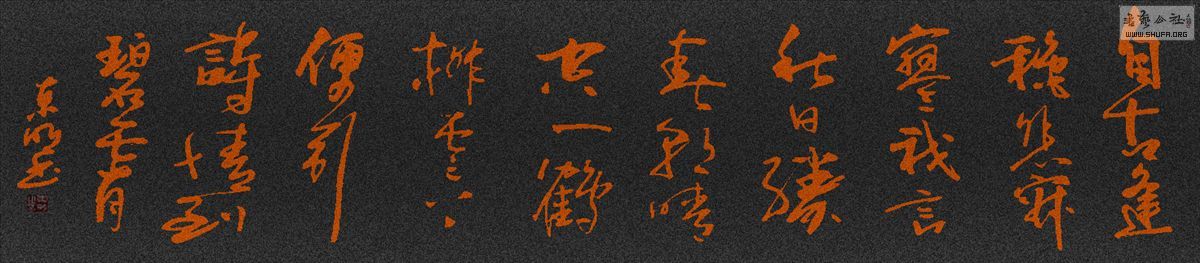 自古逢
秋悲寂
寥我言
秋日勝
春朝晴
空一鶴
排雲上
便引
詩情到
碧霄
東明书
書藝公社
WWW.SHUFA.ORG